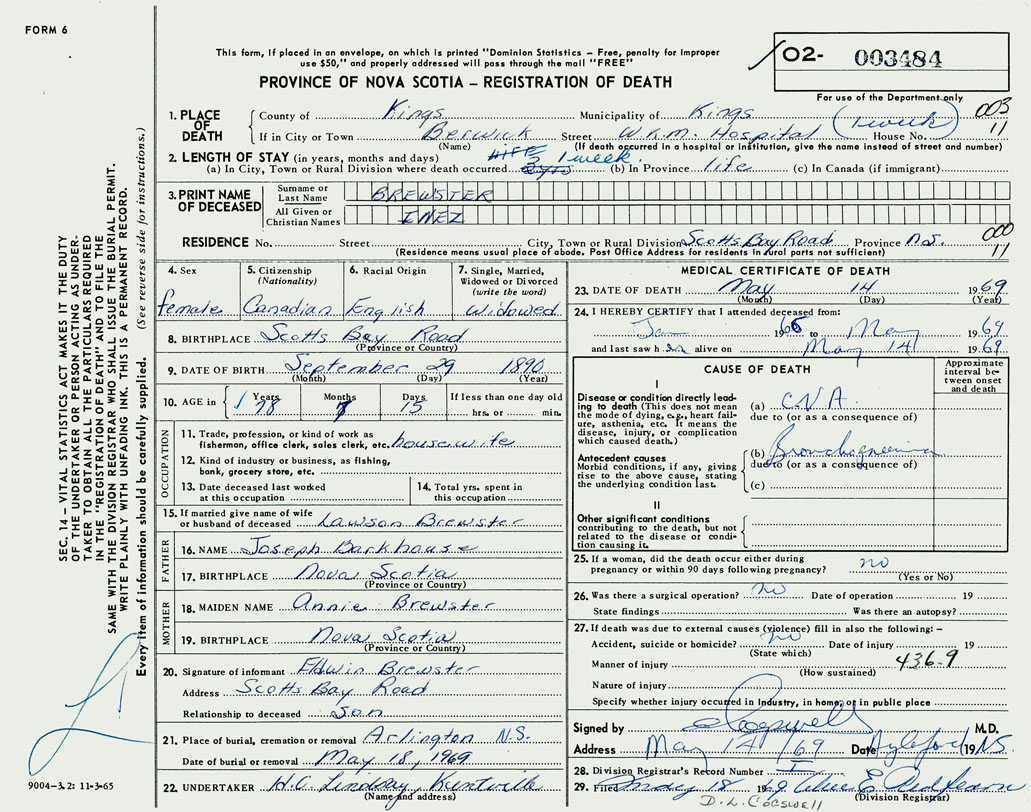 FORM 6
This form, if placed in an envelope, on which is printed "Dominion Statistics – Free, penalty for improper
use $50," and properly addressed will pass through the mail "FREE"
PROVINCE OF NOVA SCOTIA – REGISTRATION OF DEATH
02- 003484
For use of the Department only
003
11
1. PLACE OF DEATH
County of Kings Municipality of Kings
If in City or Town Berwick Street W.K.M. Hospital House No. (1 week)
(Name) (If death occurred in a hospital or institution, give the name instead of street and number)
2. LENGTH OF STAY (in years, months and days) 1 week.
(a) In City, Town or Rural Division where death occurred (b) In Province life (c) In Canada (if immigrant)
3. PRINT NAME OF DECEASED
Surname or Last Name BREWSTER
All Given or Christian Names INEZ
000
11
RESIDENCE No. Street City, Town or Rural Division Scotts Bay Road Province N.S.
(Residence means usual place of abode. Post Office Address for residents in rural parts not sufficient)
4. Sex female
5. Citizenship (Nationality) Canadian
6. Racial Origin English
7. Single, Married, Widowed or Divorced (write the word) Widowed
8. BIRTHPLACE Scotts Bay Road
(Province or Country)
9. DATE OF BIRTH September 29 1890
(Month) (Day) (Year)
10. AGE in Years 78 Months 7 Days 15 If less than one day old
hrs. or min.
OCCUPATION
11. Trade, profession, or kind of work as
fishermen, office clerk, sales clerk, etc. housewife
12. Kind of industry or business, as fishing,
bank, grocery store, etc.
13. Date deceased last worked
at this occupation
14. Total yrs. spent in
this occupation
15. If married give name of wife
or husband of deceased Lawson Brewster
FATHER
16. NAME Joseph Barkhouse
17. BIRTHPLACE Nova Scotia
(Province or Country)
MOTHER
18. MAIDEN NAME Annie Brewster
19. BIRTHPLACE Nova Scotia
(Province or Country)
20. Signature of informant Edwin Brewster
Address Scotts Bay Road
Relationship to deceased son
21. Place of burial, cremation or removal Arlington N.S.
Date of burial or removal May 18, 1969
22. UNDERTAKER H.C. Lindsay, Kentville
(Name and address)
MEDICAL CERTIFICATE OF DEATH
23. DATE OF DEATH May 14 1969
(Month) (Day) (Year)
24. I HEREBY CERTIFY that I attended deceased from:
Jan 1966 to May 1969
and last saw h er alive on May 14 1969.
CAUSE OF DEATH
Approximate interval between onset and death
I
Disease or condition directly leading to death (This does not mean the mode of dying, e.g., heart failure, asthenia, etc. It means the disease, injury, or complication which caused death.)
(a) C.V.A.
due to (or as a consequence of)
Antecedent causes
Morbid conditions, if any, giving rise to the above cause, stating the underlying condition last.
(b) Bronchopneumonia
due to (or as a consequence of)
(c)
II
Other significant conditions
contributing to the death, but not related to the disease or condition causing it.
25. If a woman, did the death occur either during
pregnancy or within 90 days following pregnancy? no
(Yes or No)
26. Was there a surgical operation? no Date of operation 19
State findings Was there an autopsy?
27. If death was due to external causes (violence) fill in also the following: –
Accident, suicide or homicide? no Date of injury 19
(State which)
Manner of injury 436-9
(How sustained)
Nature of injury
Specify whether injury occurred in Industry, in home, or in public place
Signed by Cogswell M.D.
Address May 14/69 Date Aylesford 19 N.S.
28. Division Registrar's Record Number
29. Filed May 18 1969
(Division Registrar)
D. L. COGSWELL
SEC. 14 – VITAL STATISTICS ACT MAKES IT THE DUTY
OF THE UNDERTAKER OR PERSON ACTING AS UNDER-
TAKER TO OBTAIN ALL THE PARTICULARS REQUIRED
IN THE "REGISTRATION OF DEATH" AND TO FILE THE
SAME WITH THE DIVISION REGISTRAR WHO SHALL ISSUE THE BURIAL PERMIT.
WRITE PLAINLY WITH UNFADING INK. THIS IS A PERMANENT RECORD.
Every item of information should be carefully supplied. (See reverse side for instructions.)
9004-3.2: 11-3-65